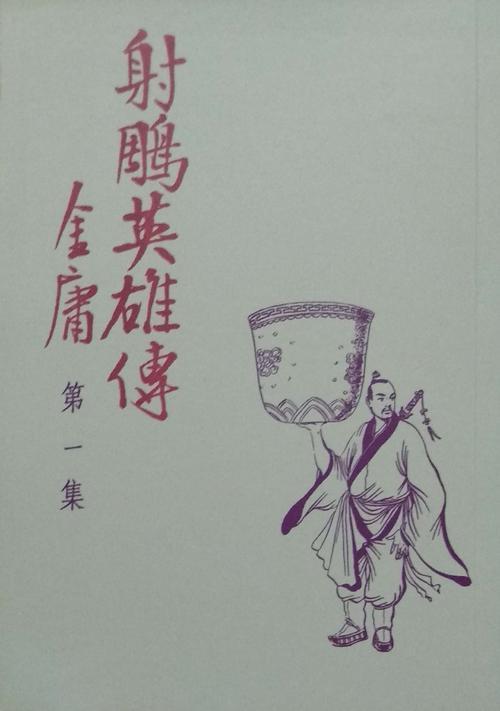 射鵰英雄傳
金庸
第一集